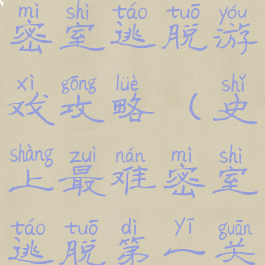 mì shì táo tuō yóu
密室逃脱游
xì gōng lüè shǐ
戏攻略（史
shàng zuì nán mì shì
上最难密室
táo tuō dì yī guān
逃脱第一关